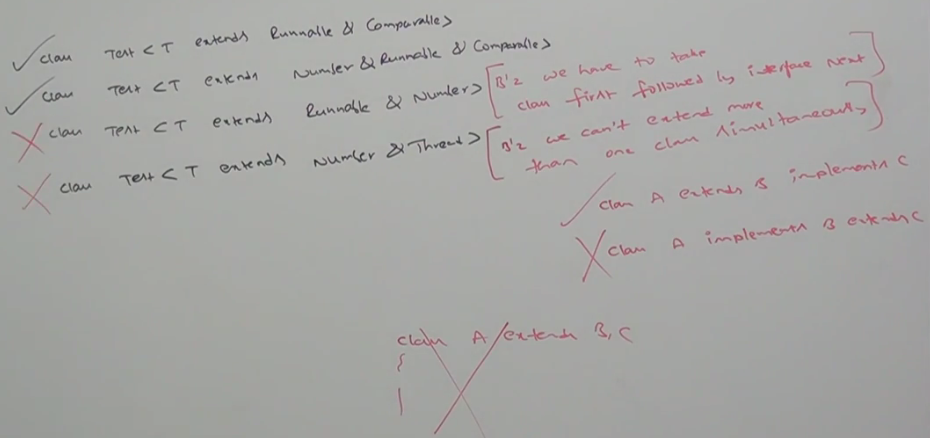 ✓ class Test < T extends Runnable & Comparable>
✓ class Test < T extends Number & Runnable & Comparable>
X class Test < T extends Runnable & Number>
[B'z we have to take
class first followed by interface next]
X class Test < T extends Number & Thread>
[B'z we can't extend more
than one class simultaneously]
✓ class A extends B implements C
X class A implements B extends C
class A extends B, C
{
}